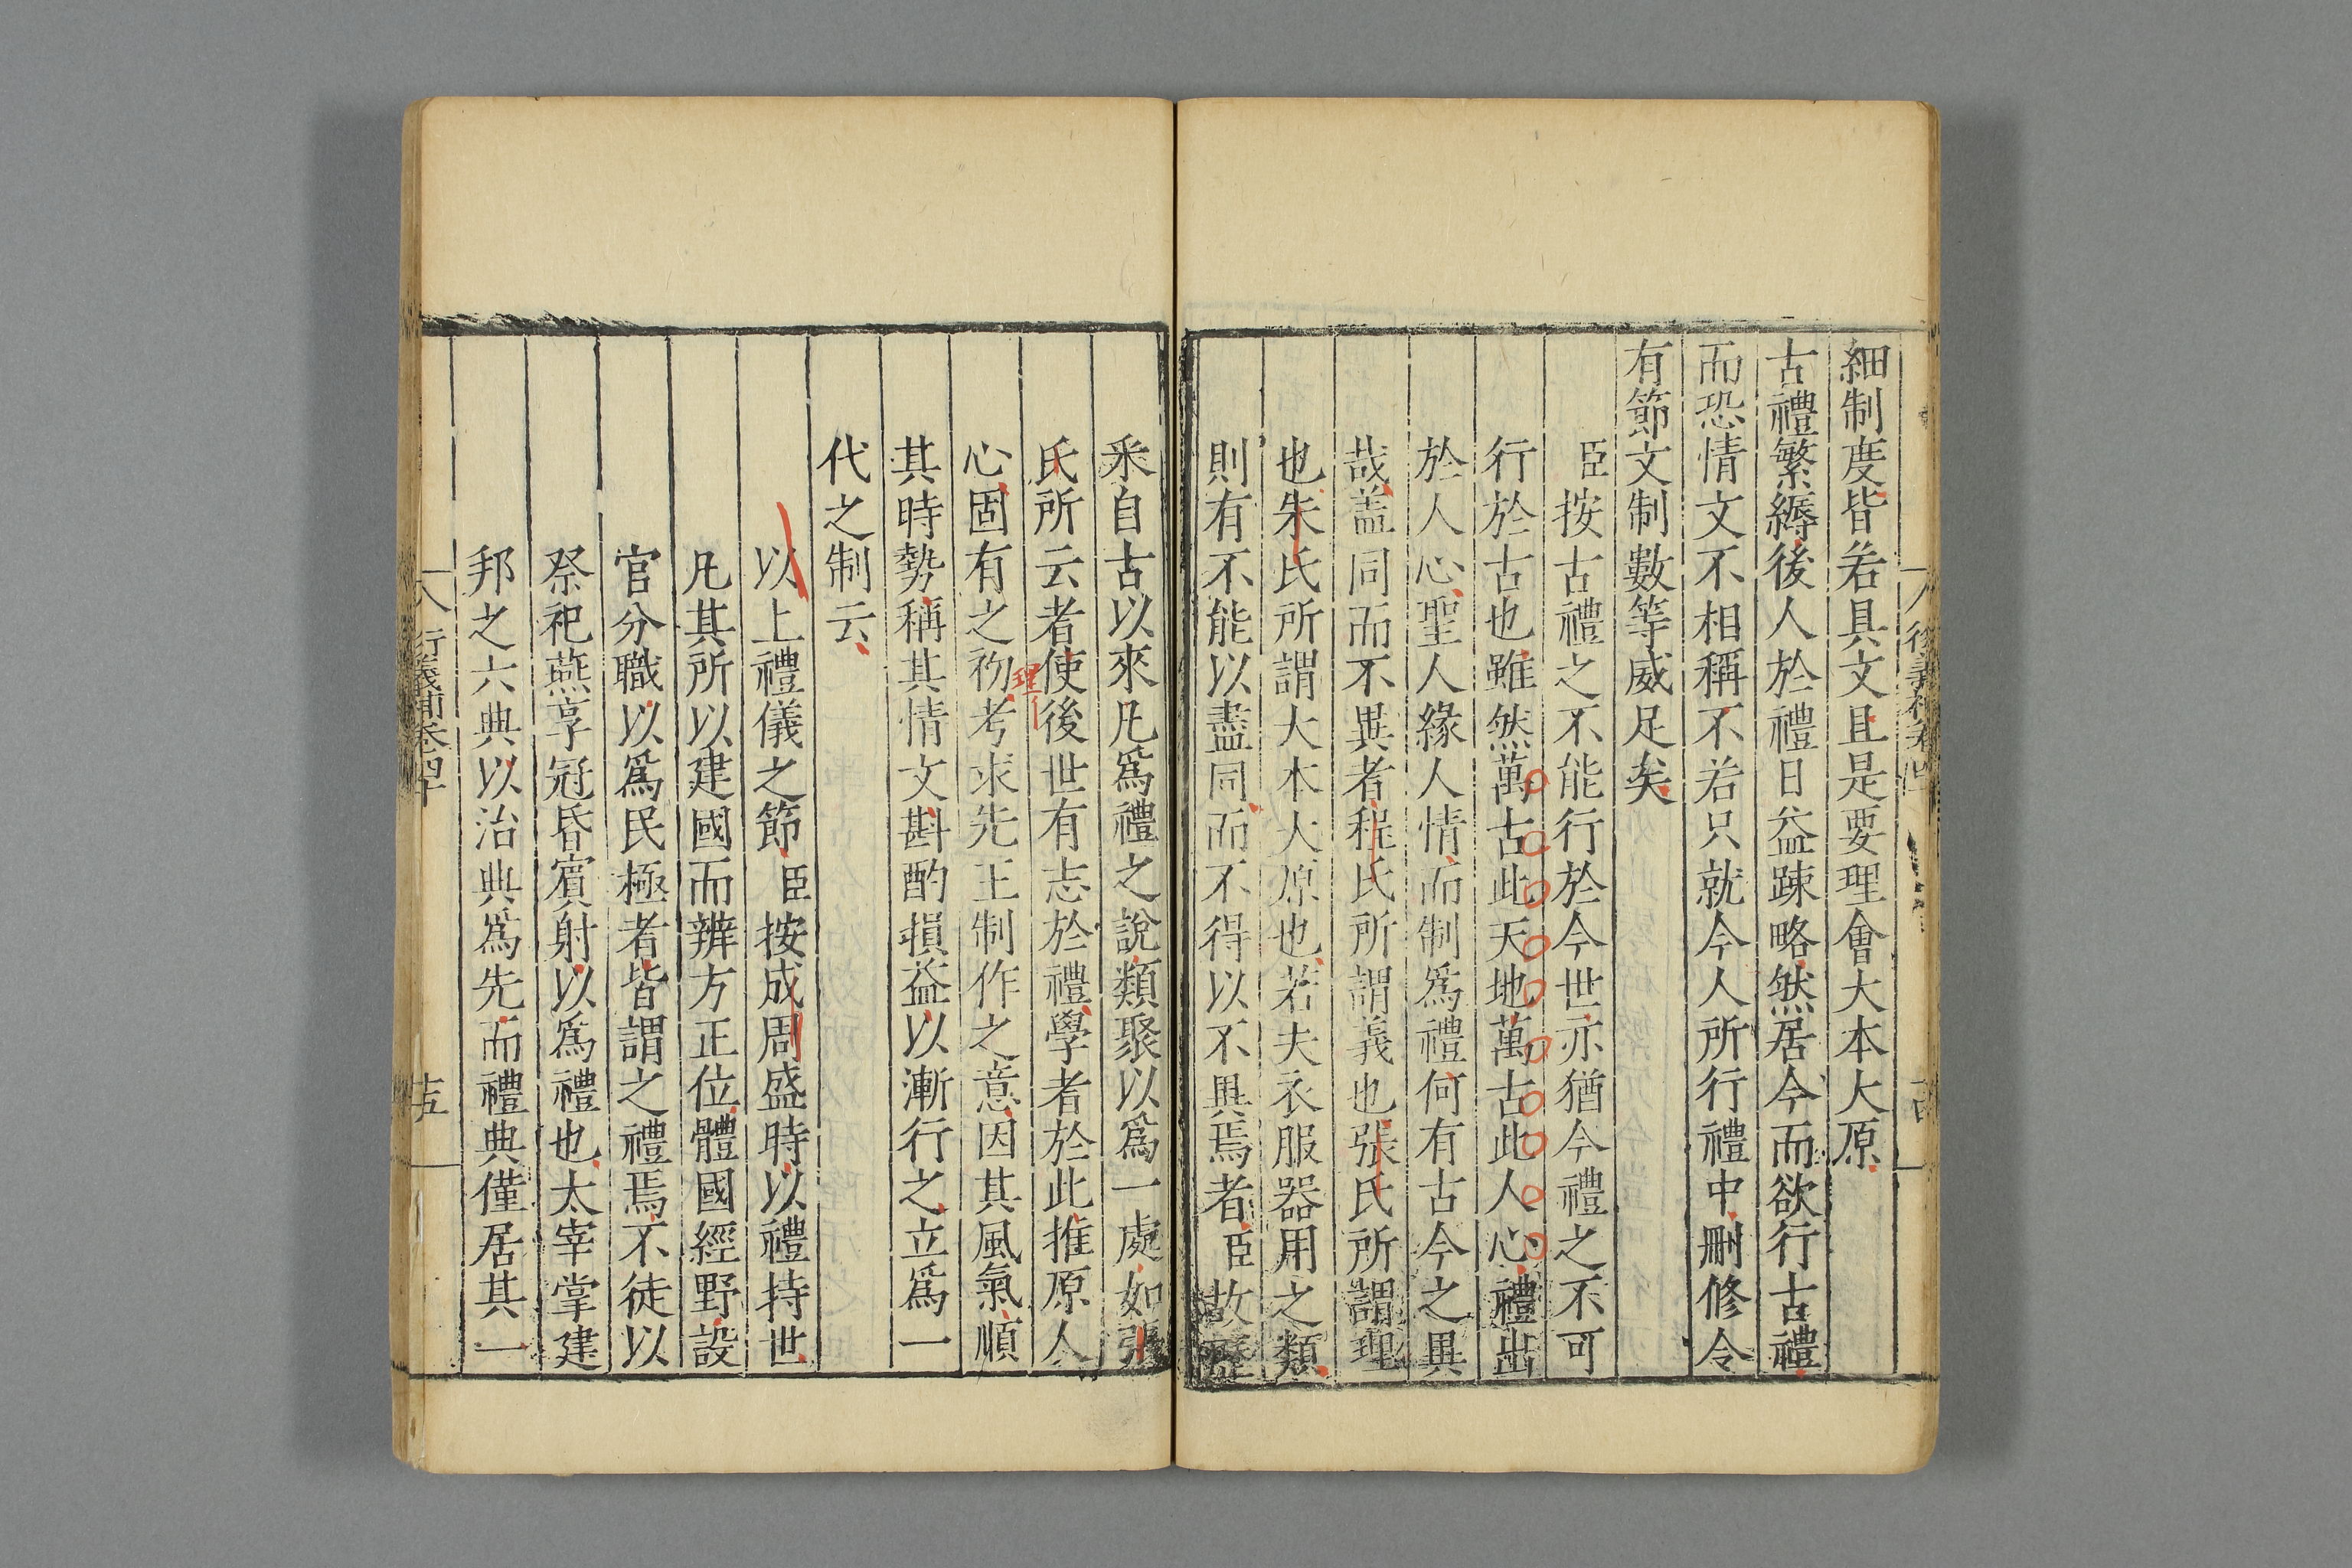 細制度皆若具文且是要理會大本大原
古禮繁縟後人於禮日益踈略然居今而欲行古禮
而恐情文不相稱不若只就今人所行禮中刪修令
有節文制數等威足矣
臣按古禮之不能行於今世亦猶今禮之不可
行於古也雖然萬古此天地萬古此人心禮出
於人心聖人緣人情而制爲禮何有古今之異
哉蓋同而不異者程氏所謂義也張氏所謂理
也朱氏所謂大本大原也若夫衣服器用之類
則有不能以盡同而不得以不異焉者臣故歷
釆自古以來凡爲禮之說類聚以爲一處如張
氏所云者使後世有志於禮學者於此推原人
心固有之礽考求先王制作之意因其風氣順
理
其時勢稱其情文斟酌損益以漸行之立爲一
代之制云
以上禮儀之節臣按成周盛時以禮持世
凡其所以建國而辨方正位體國經野設
官分職以爲民極者皆謂之禮焉不徒以
祭祀燕享冠昏賓射以爲禮也太宰掌建
邦之六典以治典爲先而禮典僅居其一
行義補卷四十
十五